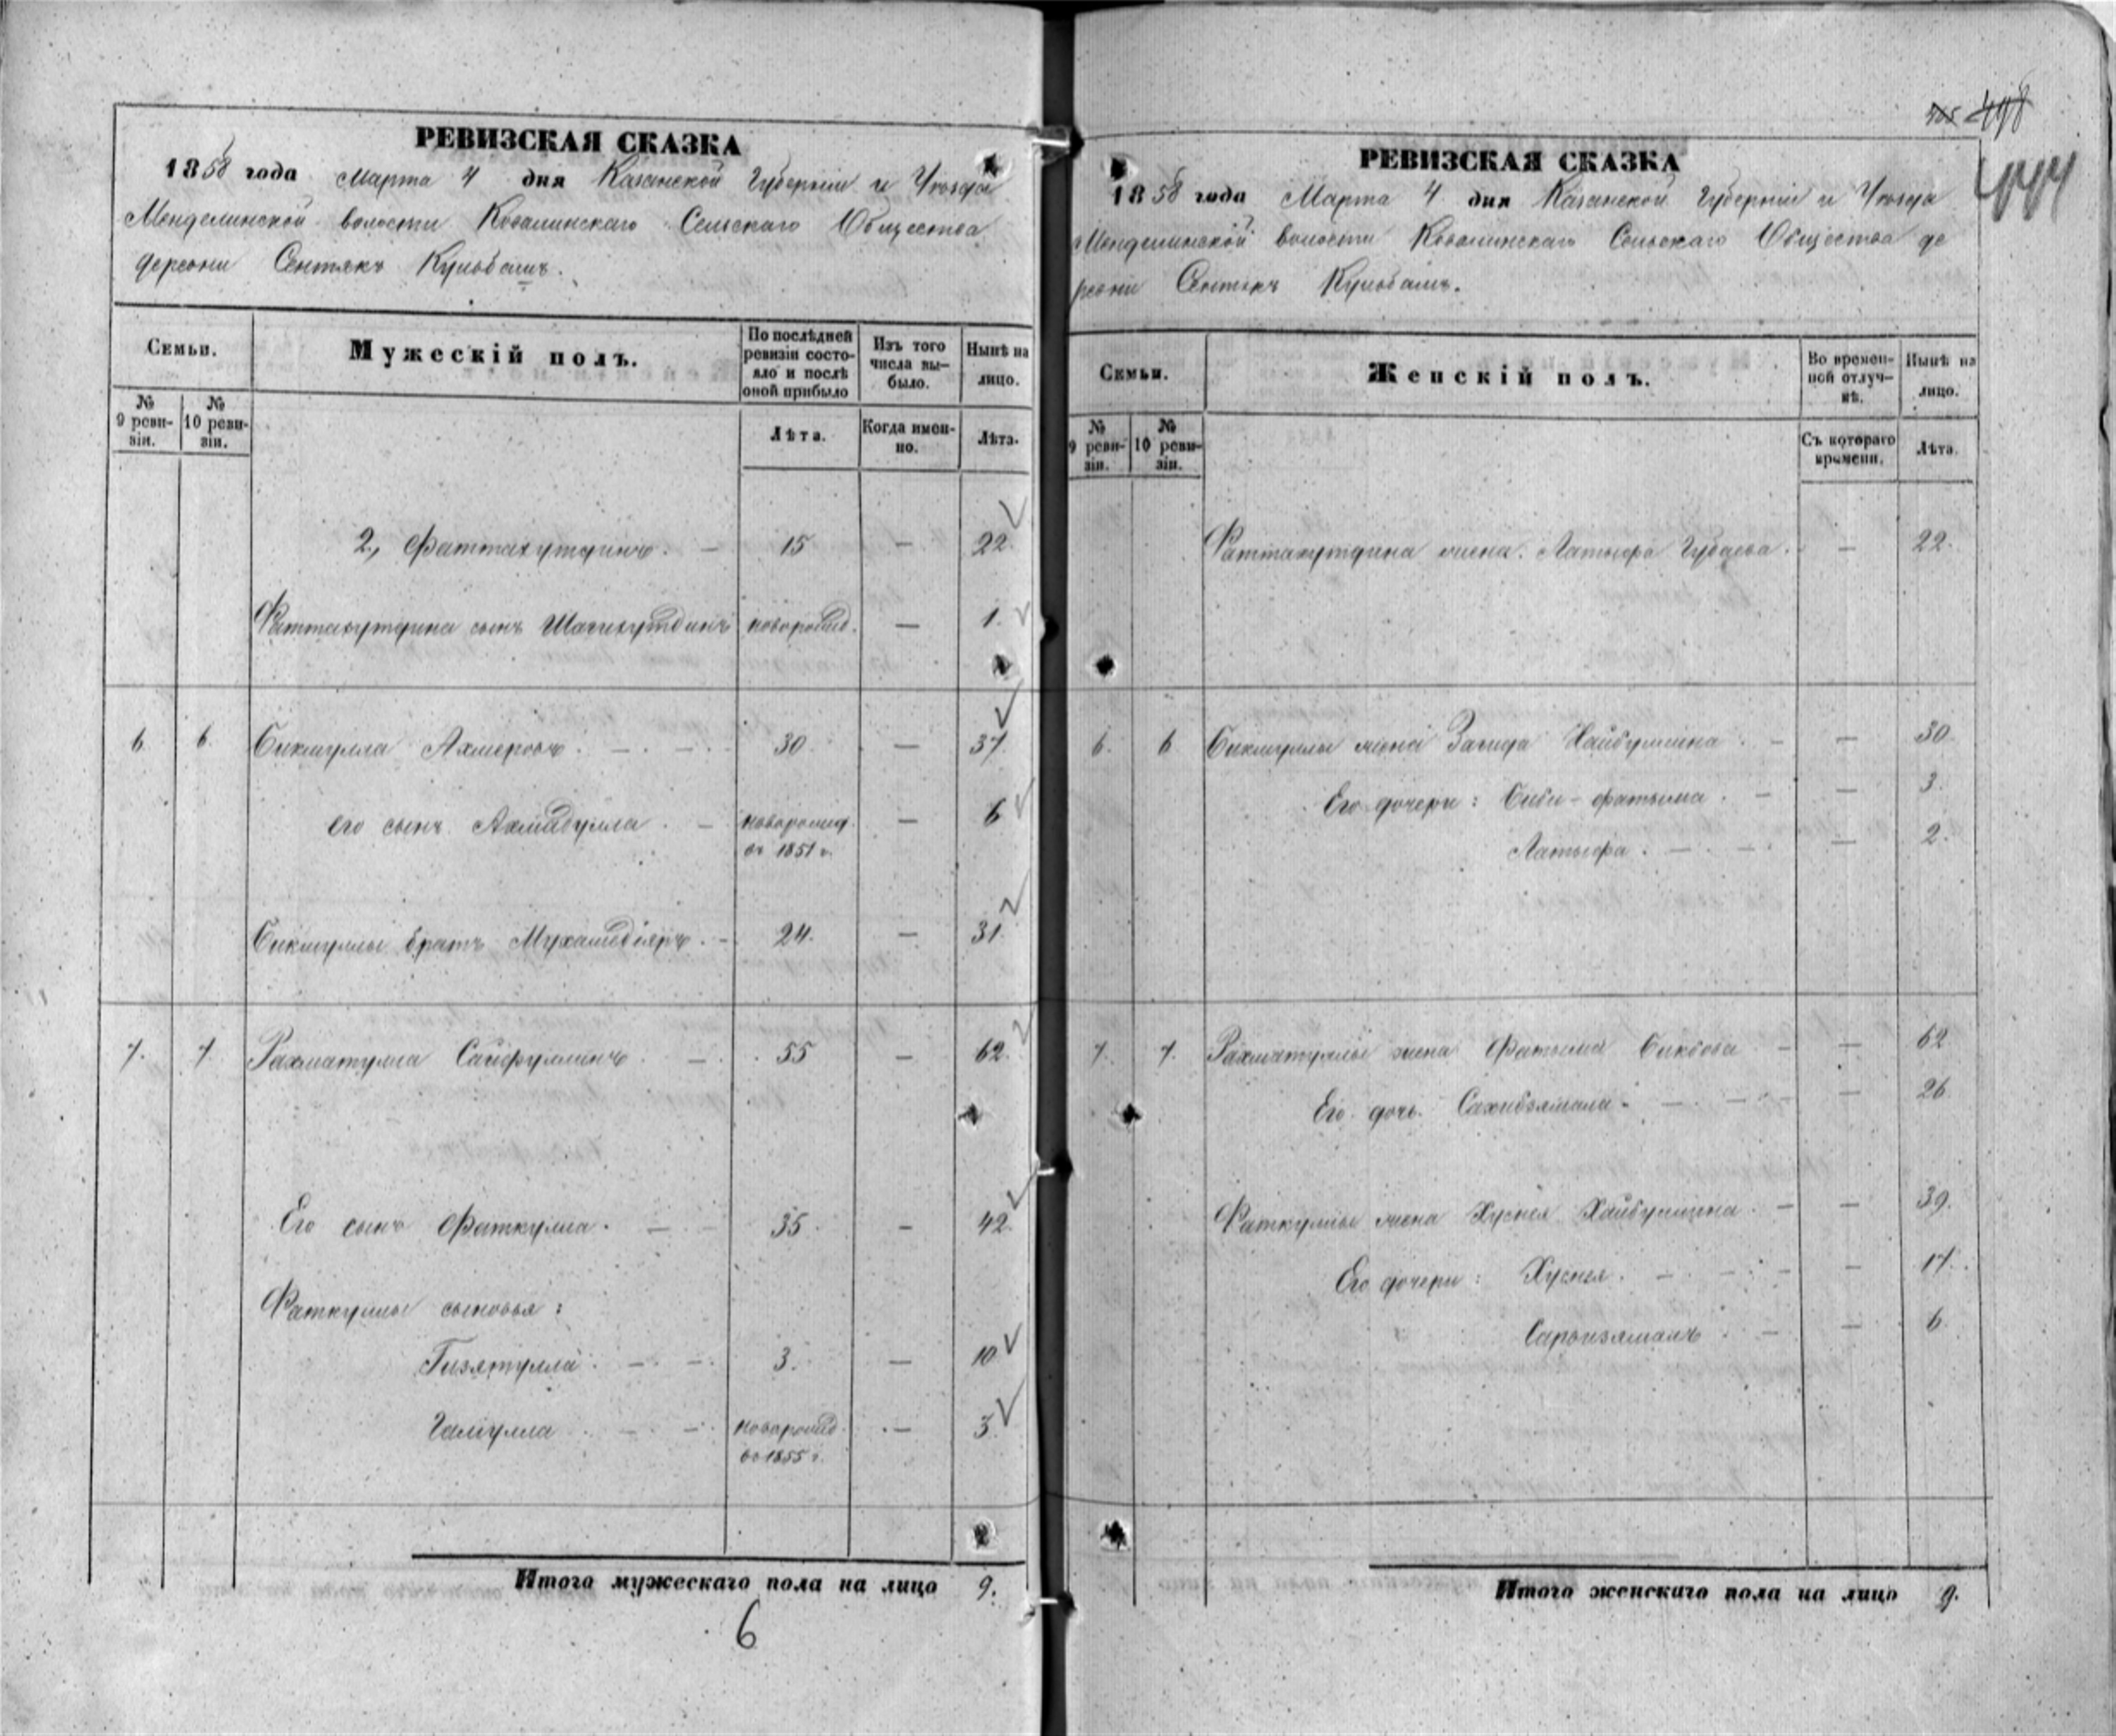 РЕВИЗСКАЯ СКАЗКА
1858 года Марта 4 дня Казанской Губерніи и Уѣзда
Менделинской волости Ковалинскаго Сельскаго Общества
деревни Сентякъ Кульбашъ.
Семьи.
Мужескій полъ.
По послѣдней ревизіи состояло и послѣ оной прибыло
Изъ того числа выбыло.
Нынѣ на лицо.
№ 9 ревизіи.
№ 10 ревизіи.
Лѣта.
Когда именно.
Лѣта.
2., Фаттахутдинъ. — 15 — 22.
Фаттахутдина сынъ Шагихутдинъ новорожд. — 1.
6 6. Бикмулла Ахмеровъ. — . — . 30. — 37.
его сынъ Ахмадулла. — новорожд. — 6
въ 1851 г.
Бикмуллы братъ Мухамедіяръ. — 24. — 31.
7. 7. Рахматулла Сайфуллинъ. — . 55 — 62.
Его сынъ Фаткулла. — — 35. — 42.
Фаткуллы сыновья:
Гизятулла. — . — . 3. — 10
Галиулла — — . новорожд. . — 3.
во 1855 г.
Итого мужескаго пола на лицо 9.
6
498
444
РЕВИЗСКАЯ СКАЗКА
1858 года Марта 4 дня Казанской Губерніи и Уѣзда
Менделинской волости Ковалинскаго Сельскаго Общества де
ревни Сентякъ Кульбашъ.
Семьи.
Женскій полъ.
Во временной отлучкѣ.
Нынѣ на лицо.
№ 9 ревизіи.
№ 10 ревизіи.
Съ котораго времени.
Лѣта.
Фаттахутдина жена. Латыфа Губаева. — 22.
6. 6 Бикмуллы жена Загида Хайбуллина. — — 30
Его дочери: Биби-фатыма. — — 3.
Латыфа. — . — . — 2.
7. 7. Рахматуллы жена Фатыма Бикбова — — 62
Его дочь. Сахибзямала. — . — . — 26
Фаткуллы жена Хусня Хайбуллина. — — 39.
Его дочери: Хусня. — . — . — — 17.
. — — 6
Итого женскаго пола на лицо 9.